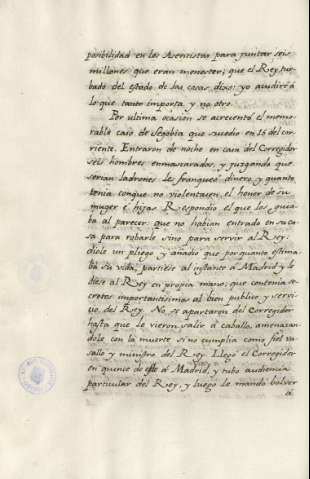 posibilidad en los Asentistas para juntar seis
millones que eran menester; que el Rey tur-
bado del estado de las cosas, dijo: yo acudiré a
lo que tanto importa, y no otro.
Por ultima ocasion se acrecentó el memo-
rable caso de Segobia que sucedio en 15 del cor-
riente. Entraron de noche en casa del Corregidor
seis hombres enmascarados, y juzgando que
serian ladrones les franqueó dinero y quanto
tenia conque no violentasen, el honor de su
muger e hijas R. respondio el que los guia-
ba al parecer: que no habian entrado en su ca-
sa para robarle sino para servir al Rey:
diole un pliego y añadio que por quanto estima-
ba su vida, partiese al instante a Madrid y le
diese al Rey en propia mano; que contenia se-
cretos importantisimos al bien publico y servi-
cio, del Rey. No se apartaron del Corregidor
hasta que le vieron salir á caballo, amenazan-
dole con la muerte si no cumplia como fiel va-
sallo y ministro del Rey. Llegó el Corregidor
en quince de este á Madrid, y tubo audiencia
particular del Rey, y luego le mandó bolver
á